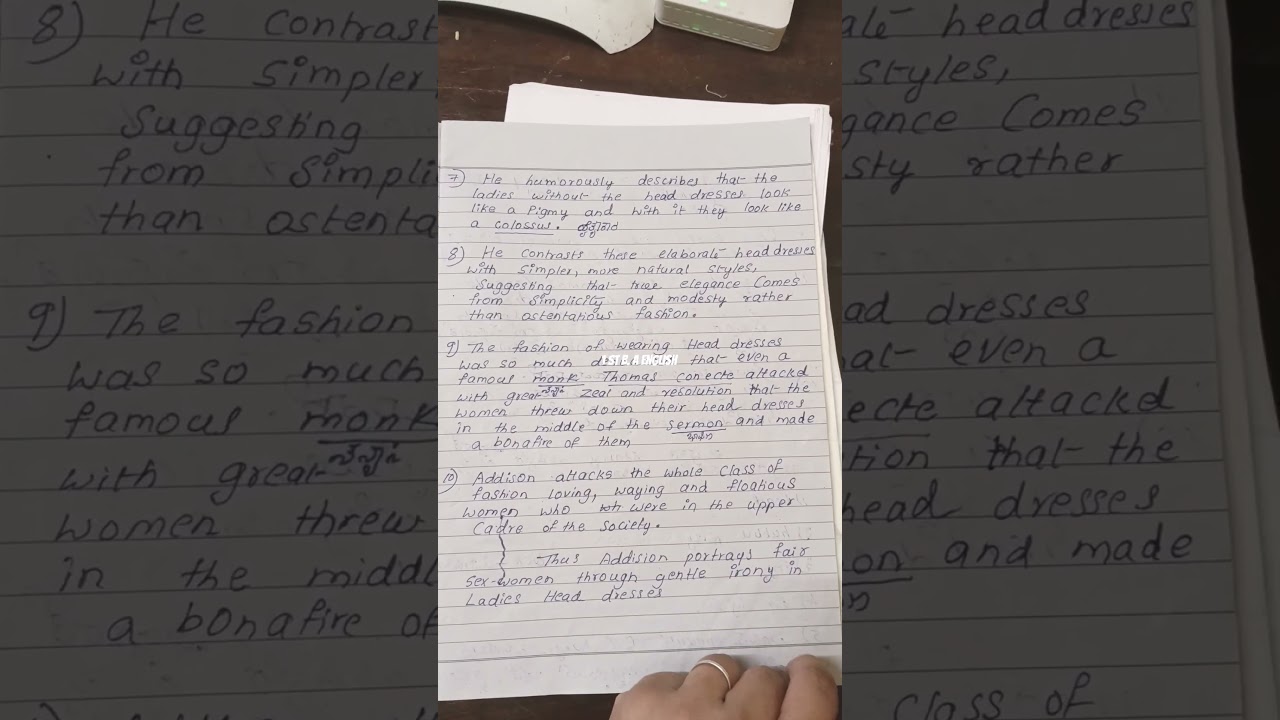 7) He humorously describes that the
ladies without the head dresses look
like a Pigmy and with it they look like
a colossus.
8) He contrasts these elaborate head dresses
with simpler, more natural styles,
suggesting that true elegance Comes
from Simplicity and modesty rather
than ostentatious fashion.
9) The fashion of wearing Head dresses
was so much that even a
1 ST B. A ENGLISH
famous monk Thomas conecte attackd
with great zeal and resolution that the
women threw down their head dresses
in the middle of the Sermon and made
a bonafire of them
10) Addison attacks the whole class of
fashion loving, waying and floatious
women who wh were in the upper
Cadre of the Society.
Thus Addision portrays fair
Sex-women through gentle irony in
Ladies Head dresses